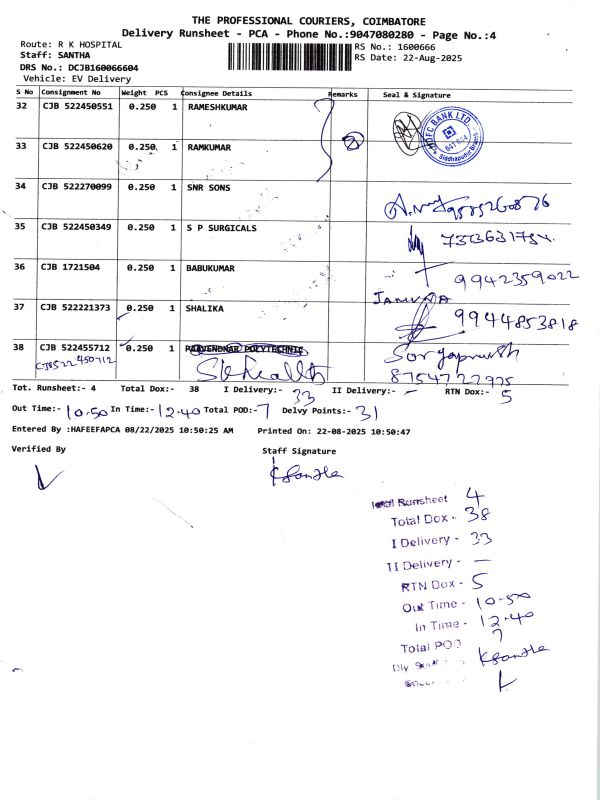 THE PROFESSIONAL COURIERS, COIMBATORE
Delivery Runsheet - PCA - Phone No.:9047080280 - Page No.:4
Route: R K HOSPITAL
RS No.: 1600666
Staff: SANTHA
RS Date: 22-Aug-2025
DRS No.: DCJB160066604
Vehicle: EV Delivery
S No Consignment No Weight PCS Consignee Details Remarks Seal & Signature
32 CJB 522450551 0.250 1 RAMESHKUMAR
HDFC BANK LTD.
Siddhapudur Branch
33 CJB 522450620 0.250 1 RAMKUMAR 2
34 CJB 522270099 0.250 1 SNR SONS
35 CJB 522450349 0.250 1 S P SURGICALS
36 CJB 1721504 0.250 1 BABUKUMAR 9942359022
JAMUNA
37 CJB 522221373 0.250 1 SHALIKA 9944853818
38 CJB 522455712 0.250 1 PAAVENDHAR POLYTECHNIC
CJB522450712
8754727975
Tot. Runsheet:- 4 Total Dox:- 38 I Delivery:- 33 II Delivery:- - RTN Dox:- 5
Out Time:- 10.50 In Time:- 12.40 Total POD:- 7 Delvy Points:- 31
Entered By :HAFEEFAPCA 08/22/2025 10:50:25 AM Printed On: 22-08-2025 10:50:47
Verified By Staff Signature
KSantha
Total Runsheet 4
Total Dox - 38
I Delivery - 33
II Delivery - —
RTN Dox - 5
Out Time - 10-50
In Time - 12.40
Total POD 7
KSantha